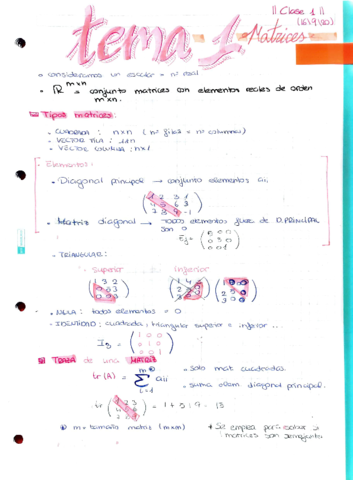 || Clase 1 ||
(16/9/20)
tema 1. Matrices
o consideramos un escalar = nº real
ℝ^m×n → conjunto matrices con elementos reales de orden m×n.
Tipos matrices:
- CUADRADA : n×n (nº filas = nº columnas)
- VECTOR FILA : 1×n
- VECTOR COLUMNA : n×1
Elementos:
- Diagonal principal → conjunto elementos aii
- Matriz diagonal → Todos elementos fuera de D.PRINCIPAL son 0
Ej = (0 0 0 / 0 5 0 / 0 0 1)
- TRIANGULAR:
- Superior Inferior
- NULA : todos elementos = 0
- IDENTIDAD : cuadrada, triangular superior e inferior ...
I3 = (1 0 0 / 0 1 0 / 0 0 1)
TRAZA de una MATRIZ
tr (A) = Σ aii
i=1
- solo mat cuadradas
- suma elem. diagonal principal.
= 1 + 5 + 7 = 13
m = tamaño matriz (m×m)
* Se emplea para saber si matrices son semejantes